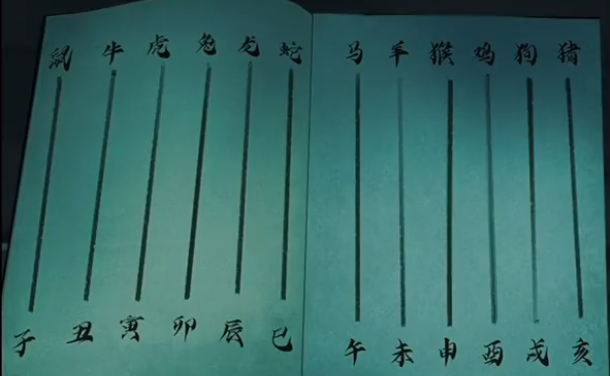 鼠 牛 虎 兔 龙 蛇 马 羊 猴 鸡 狗 猪
子 丑 寅 卯 辰 巳 午 未 申 酉 戌 亥